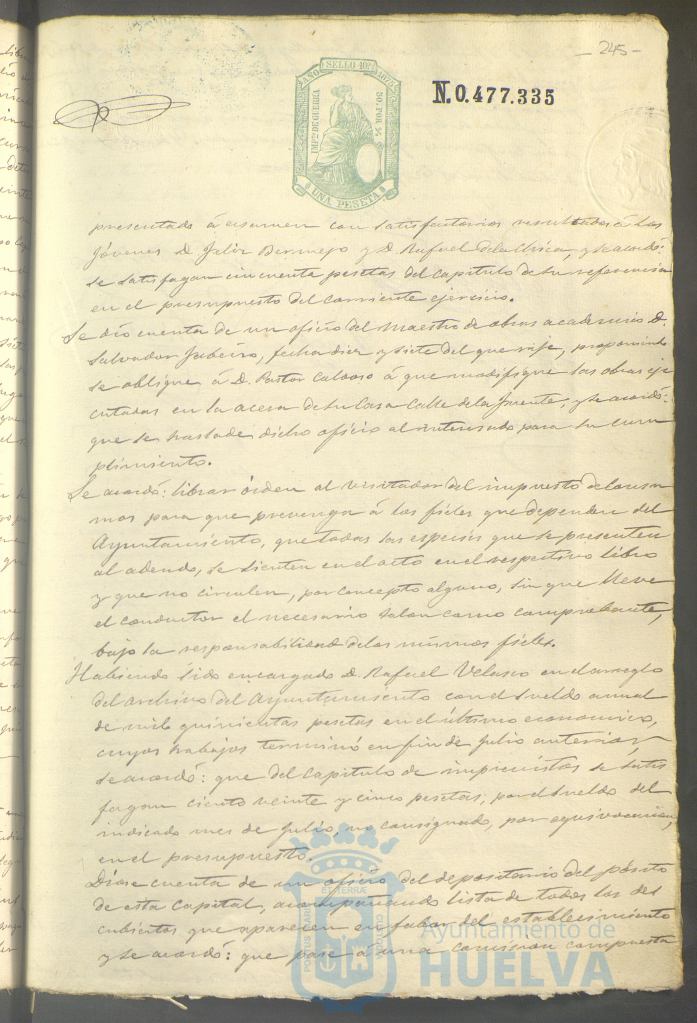 - 245 -
AÑO SELLO 10º 1875
IMPTO DE GUERRA
50 POR %
UNA PESETA
N.0.477.335
presentado á exsamen con satisfactorios resultados á los
Jóvenes D. Felix Bermejo y D. Rafael de la y se acordó:
se satisfagan cincuenta pesetas del capitulo de su referencia
en el presupuesto del corriente ejercicio.
Se dió cuenta de un oficio del Maestro de obras academico D.
Salvador fecha diez y siete del que rije, proponiendo
se oblique á D. Pastor á que modifique las obras eje
cutadas en la acera de su Casa Calle de la Fuente, y se acordó:
que se traslade dicho oficio al interesado para su cum
plimiento.
Se acordó: librar órden al Visitador del impuesto de consu
mos para que prevenga á los fieles que dependen del
Ayuntamiento, que todas las especies que se presenten
al adeudo, se sienten en el acto en el respectivo libro
y que no circulen, por concepto alguno, sin que lleve
el conductor el necesario talon como comprobante,
bajo la responsabilidad de los mismos fieles.
Habiendo sido encargado D. Rafael Velasco en el arreglo
del archivo del Ayuntamiento con el sueldo anual
de mil quinientas pesetas en el último economico,
cuyos trabajos terminó en fin de Julio anterior,
se acordó: que del Capitulo de imprevistos se satis
fagan ciento veinte y cinco pesetas, por el sueldo del
indicado mes de Julio, no consignado, por equivocacion,
en el presupuesto.
Dióse cuenta de un oficio del depositario del pósito
de esta Capital, acompañando lista de todos los des
cubiertos que aparecen en fabor del establecimiento
y se acordó: que pase á una comision compuesta
Ayuntamiento de
HUELVA